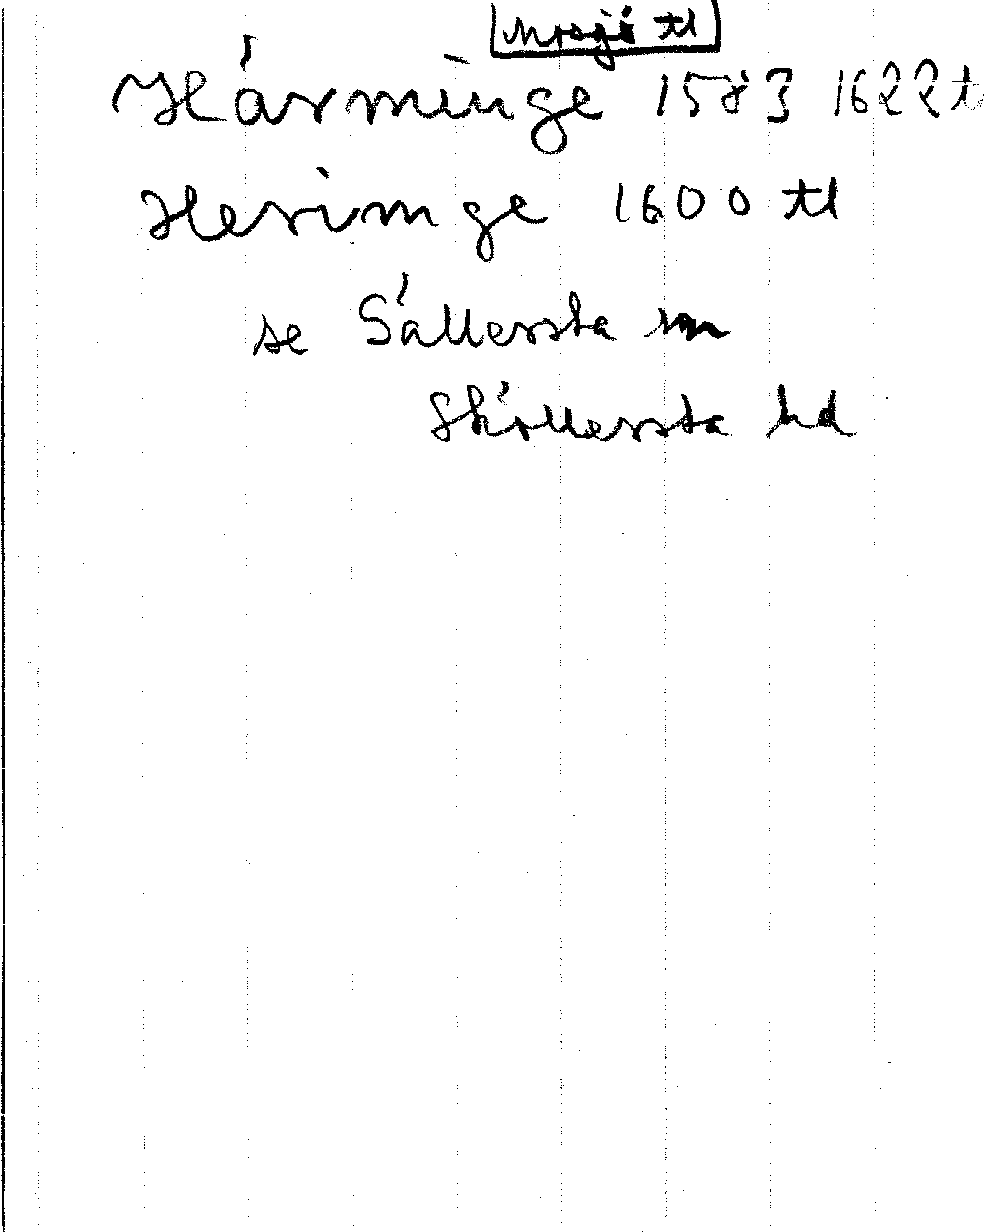 tl
Härminge 1583 1622 t
Herimge 1600 tl
se Sällersta sn
Sköllersta hd